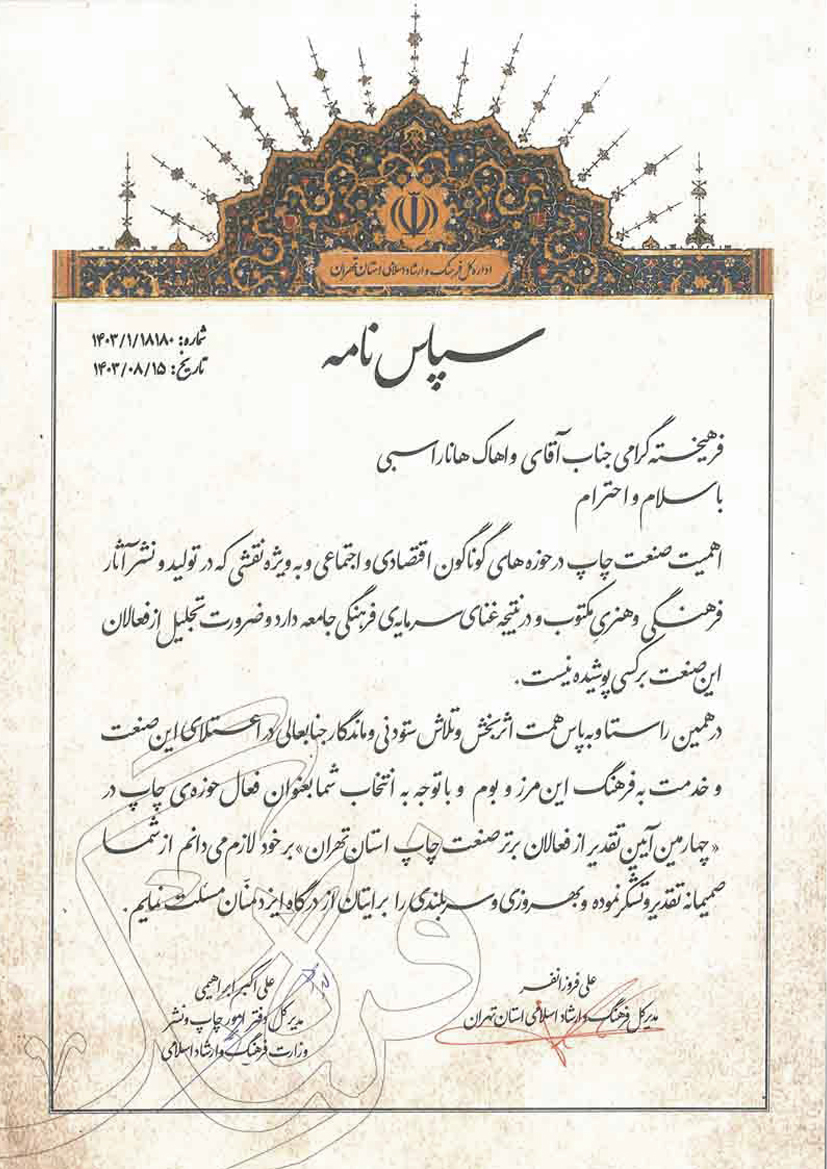 اداره کل فرهنگ و ارشاد اسلامی استان تهران
سپاس نامه
شماره: ۱۴۰۳/۱/۱۸۱۸۰
تاریخ: ۱۴۰۳/۰۸/۱۵
فرهیخته گرامی جناب آقای واهاک هاناراسبی
با سلام و احترام
اهمیت صنعت چاپ در حوزه های گوناگون اقتصادی و اجتماعی و به ویژه نقشی که در تولید و نشر آثار
فرهنگی و هنریِ مکتوب و در نتیجه غنای سرمایه‌ی فرهنگی جامعه دارد و ضرورت تجلیل از فعالان
این صنعت بر کسی پوشیده نیست.
در همین راستا و به پاس همت اثربخش و تلاش ستودنی و ماندگار جنابعالی در اعتلای این صنعت
و خدمت به فرهنگ این مرز و بوم و با توجه به انتخاب شما بعنوان فعال حوزه‌ی چاپ در
«چهارمین آیین تقدیر از فعالان برتر صنعت چاپ استان تهران» بر خود لازم می دانم از شما
صمیمانه تقدیر و تشکر نموده و بهروزی و سربلندی را برایتان از درگاه ایزد منّان مسئلت نمایم.
علی فروزانفر
مدیرکل فرهنگ و ارشاد اسلامی استان تهران
علی اکبر ابراهیمی
مدیرکل دفتر امور چاپ و نشر
وزارت فرهنگ و ارشاد اسلامی